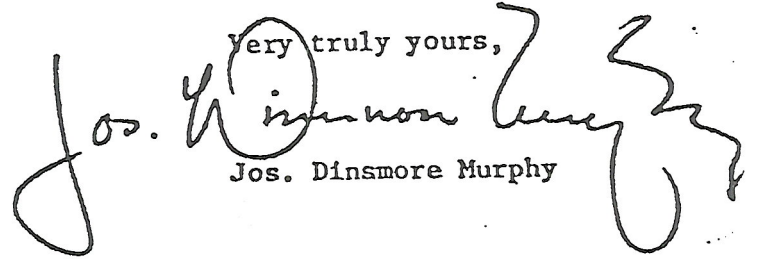 Very truly yours,
Jos. Dinsmore Murphy
Jos. Dinsmore Murphy